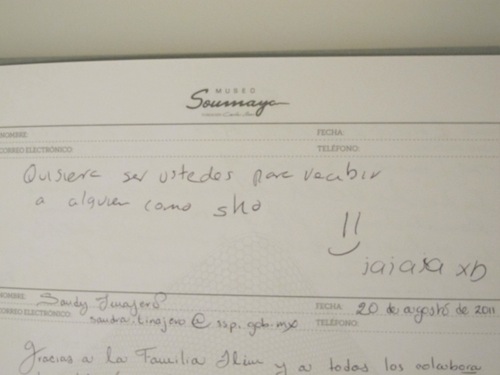 MUSEO
Soumaya
NOMBRE: FECHA:
CORREO ELECTRÓNICO: TELÉFONO:
Quisiera ser ustedes para recibir
a alguien como sho
jajajaja xD
NOMBRE: Sandy Tinajero FECHA: 20 de agosto de 2011
CORREO ELECTRÓNICO: sandra.tinajero@ssp.gob.mx TELÉFONO:
Gracias a la Familia Slim y a todos los colabora